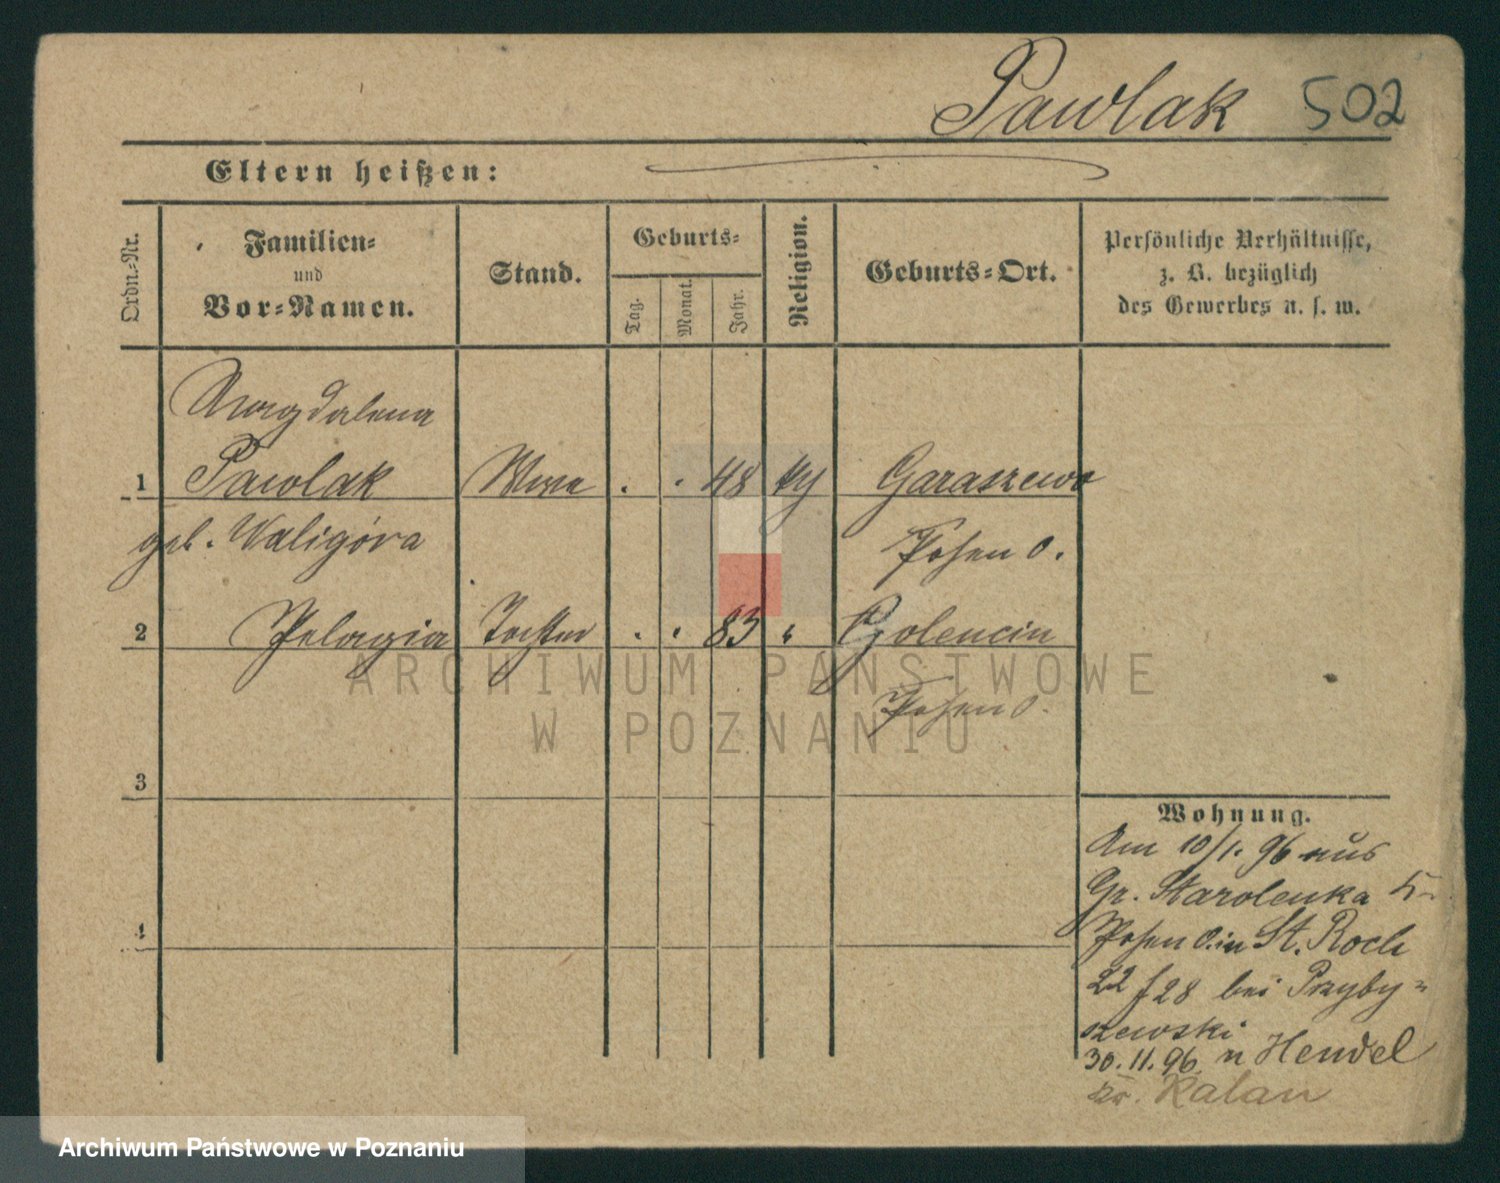 Pawlak 502
Eltern heißen:
Ordn.-Nr.
Familien-
und
Vor-Namen.
Stand.
Geburts-
Tag.
Monat.
Jahr.
Religion.
Geburts-Ort.
Persönliche Verhältnisse,
z. B. bezüglich
des Gewerbes u. s. w.
Magdalena
1 Pawlak . . 48 Garaszewo
geb. Waligóra Posen O.
2 Pelagia Tochter . . 83 " Golencin
Posen O.
3
4
Wohnung.
Am 10/1. 96 aus
Gr. Starolenka
Posen O. in St. Roch
22 f 28 bei Przyby-
szewski
30.11.96 n Hendel
Kr. Kalau
ARCHIWUM PAŃSTWOWE
W POZNANIU
Archiwum Państwowe w Poznaniu